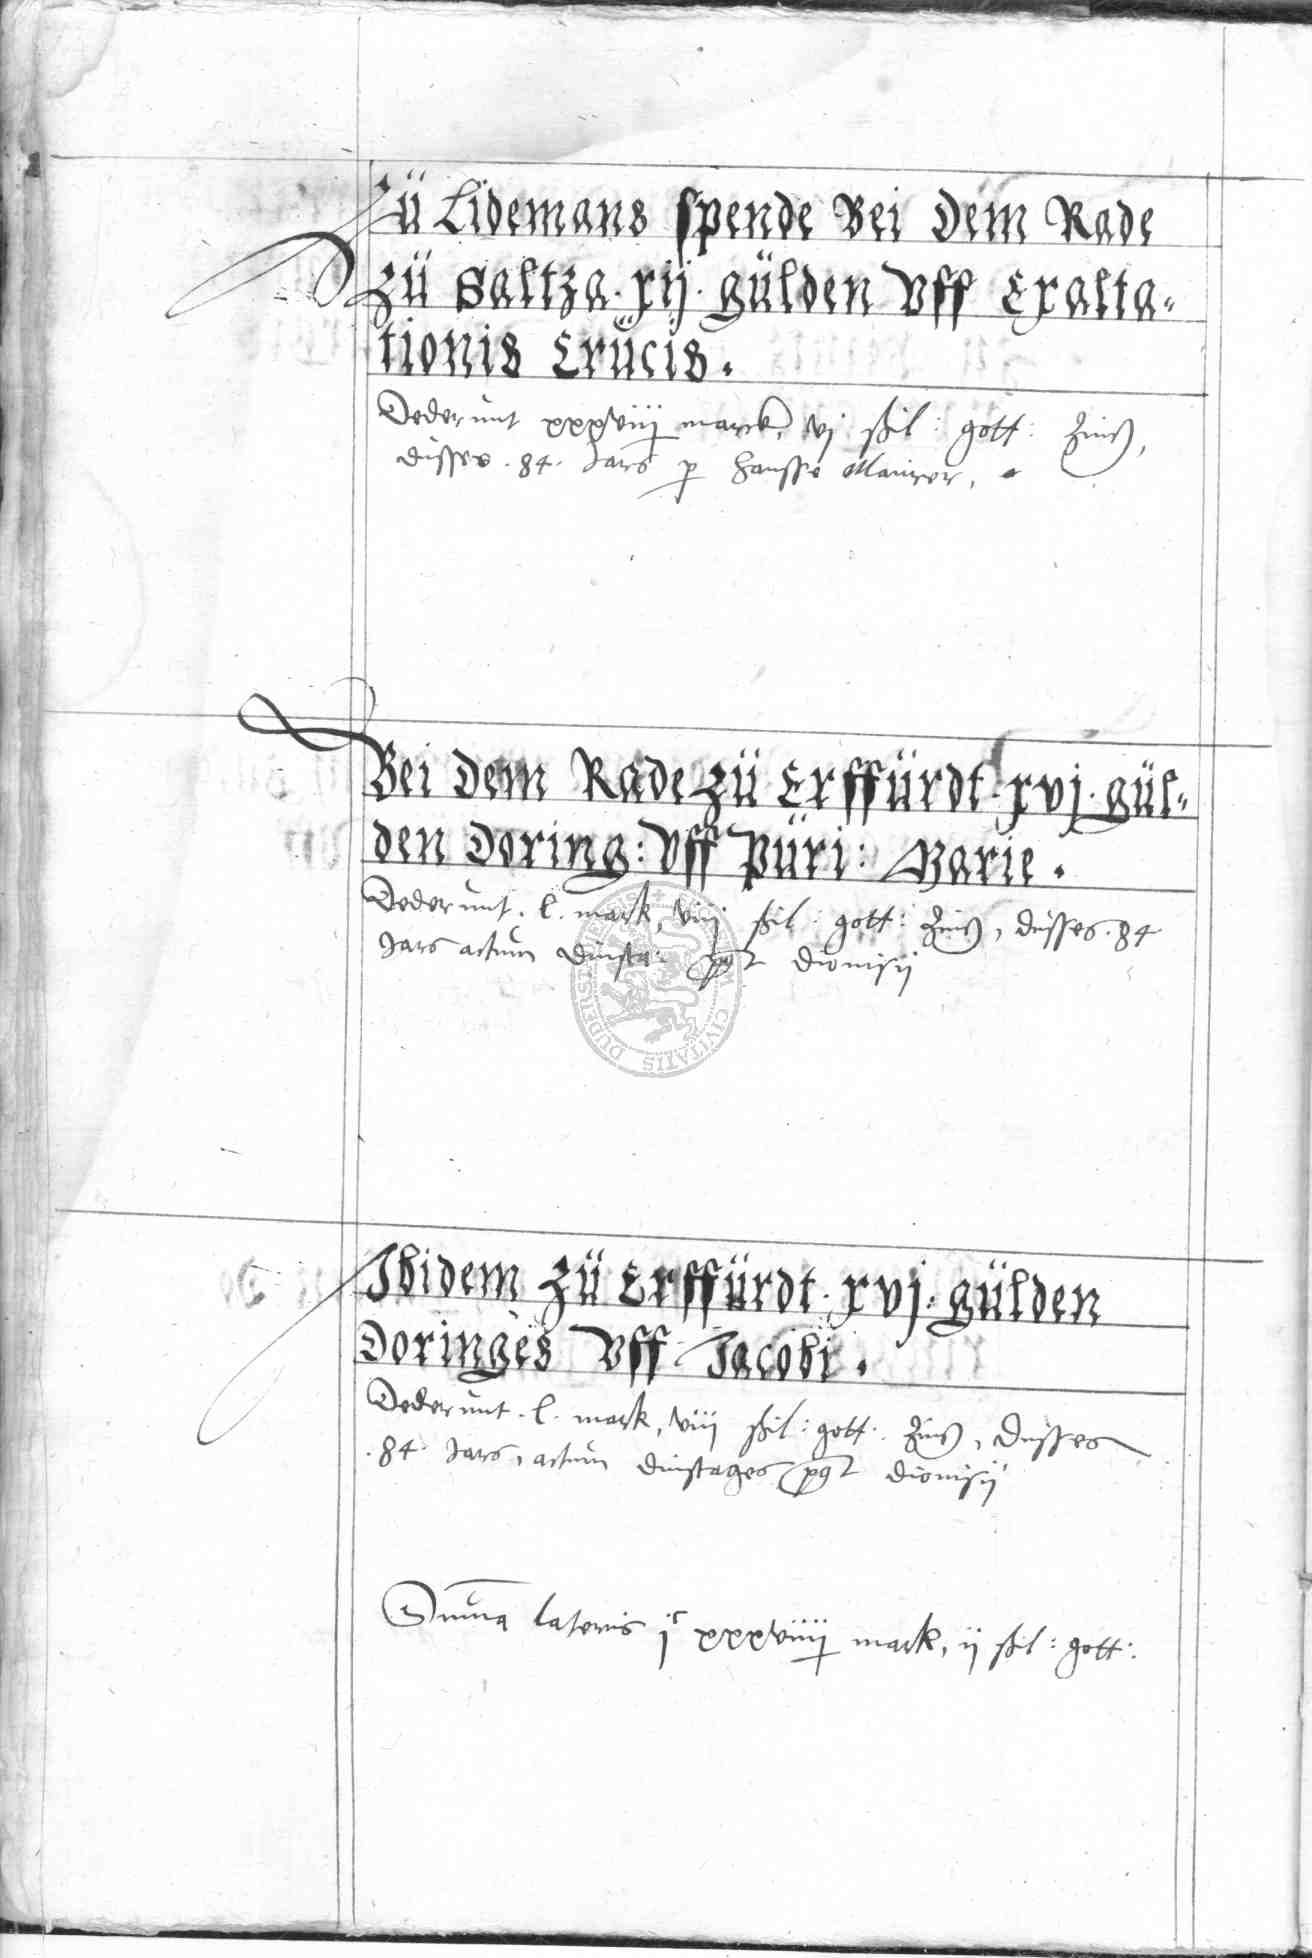 Zü Lidemans spende Bei Dem Rade
zü Saltza · xij · gülden Vff Exalta-
tionis Crücis .
Dederunt xxxviiij marck, vj ßil : gott : Zinß,
disses . 84 . Jars p Hansse Maurer,
Bei Dem Rade zü Erffürdt · xvj · gül-
den Doring : Vff Püri : Marie .
Dederunt . l . mark, viiij ßil : gott : Zinß, disses . 84
Jars actum dinsta: pꝰt dionisij
Ibidem zü Erffürdt · xvj · gülden
Doringes Vff Jacobi .
Dederunt . l . mark, viiij ßil : gott . Zinß, disses
. 84 . Jars, actum dinstages pꝰt dionisij
Summa lateris jc xxxviiij mark, ij ßil : gott :
CIVITATIS DUDERST